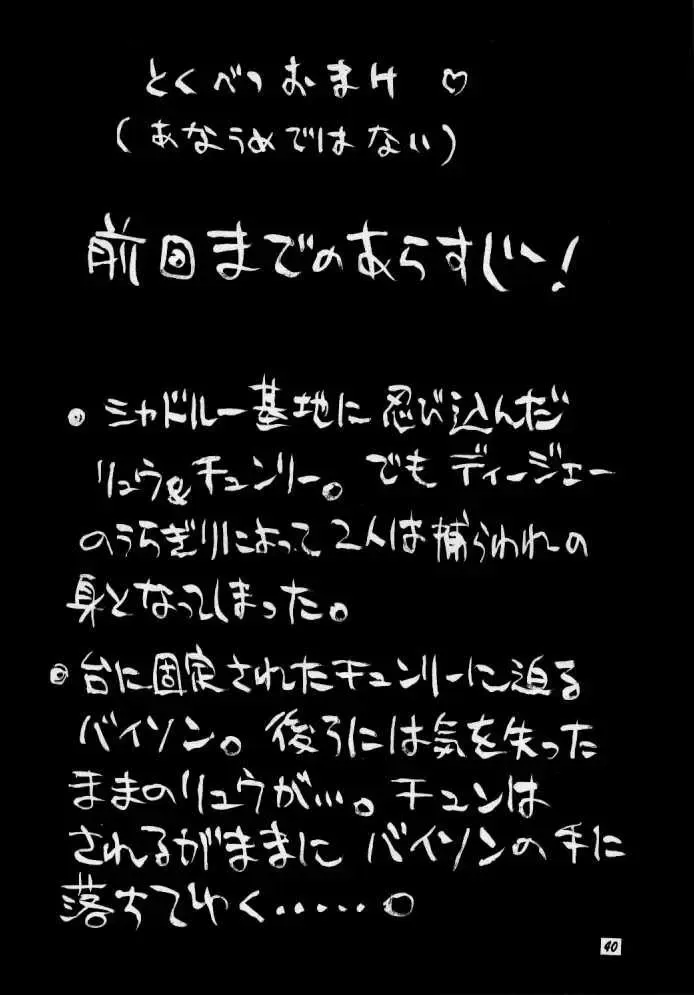 とくべつおまけ ♡
(あなうめではない)
前回までのあらすじ〜!
・シャドルー基地に忍び込んだ
リュウ&チュンリー。でもディージェー
のうらぎりによって2人は捕らわれの
身となってしまった。
・台に固定されたチュンリーに迫る
バイソン。後ろには気を失った
ままのリュウが…。チュンは
されるがままにバイソンの手に
落ちてゆく・・・・・。
40